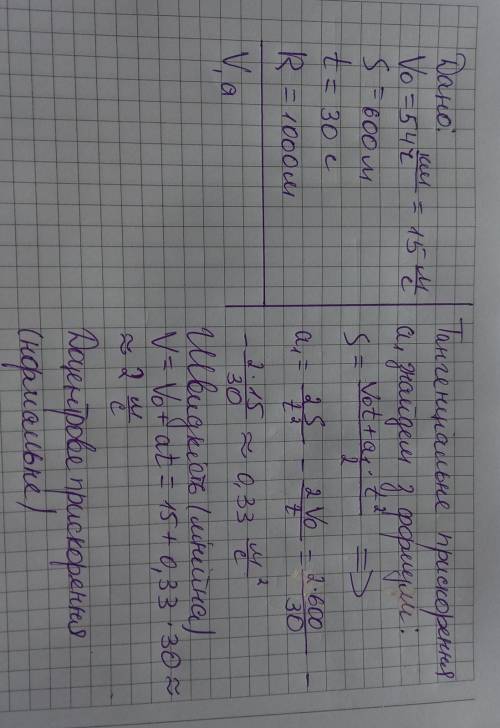 Дано:
V₀ = 54 км/ч = 15 м/с
S = 600 м
t = 30 с
R = 1000 м
V, a
Тангенціальне прискорення
a₁ знайдем з формули:
S = (V₀t + a₁·t²)/2 ⟹
a₁ = 2S/t² - 2V₀/t = 2·600/30 -
- 2·15/30 ≈ 0,33 м/с²
Швидкість (лінійна)
V = V₀ + at = 15 + 0,33·30 ≈
≈ 2 м/с
Доцентрове прискорення
(нормальне)